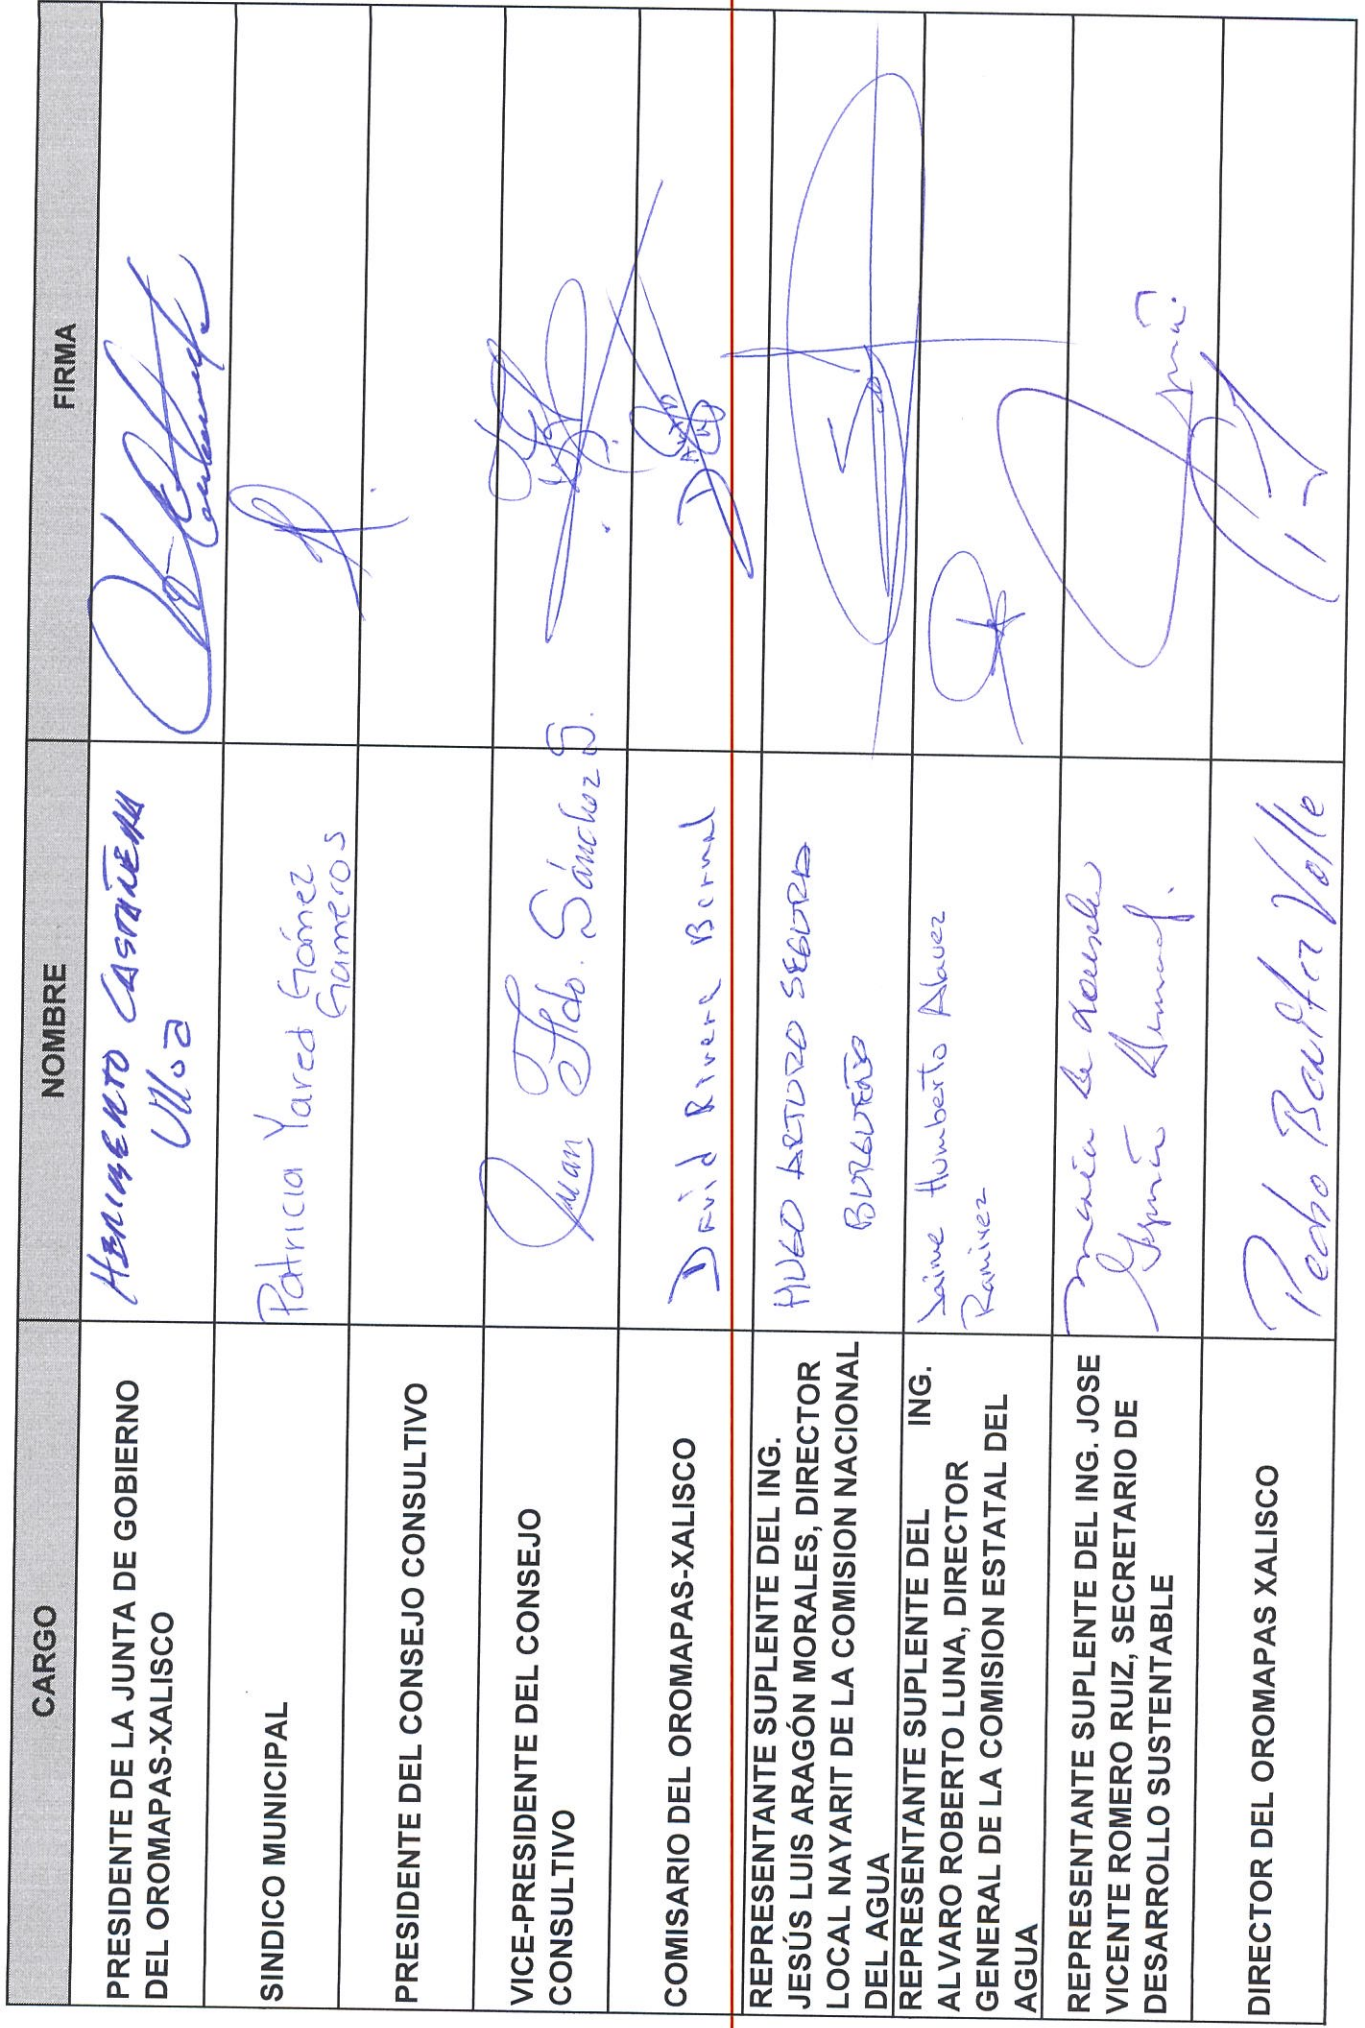 CARGO NOMBRE FIRMA
PRESIDENTE DE LA JUNTA DE GOBIERNO
DEL OROMAPAS-XALISCO
HERIBERTO CASTAÑEDA
Ulloa
SINDICO MUNICIPAL
Patricia Yared Gómez
Gameros
PRESIDENTE DEL CONSEJO CONSULTIVO
VICE-PRESIDENTE DEL CONSEJO
CONSULTIVO
Juan Fdo. Sánchez S.
COMISARIO DEL OROMAPAS-XALISCO
David Rivera Bernal
REPRESENTANTE SUPLENTE DEL ING.
JESÚS LUIS ARAGÓN MORALES, DIRECTOR
LOCAL NAYARIT DE LA COMISION NACIONAL
DEL AGUA
HUGO ARTURO SEGURA
BURGUEÑO
REPRESENTANTE SUPLENTE DEL ING.
ALVARO ROBERTO LUNA, DIRECTOR
GENERAL DE LA COMISION ESTATAL DEL
AGUA
Jaime Humberto Alavez
Ramirez
REPRESENTANTE SUPLENTE DEL ING. JOSE
VICENTE ROMERO RUIZ, SECRETARIO DE
DESARROLLO SUSTENTABLE
Maria de Lourdes
DIRECTOR DEL OROMAPAS XALISCO
Pedro Bautista Valle